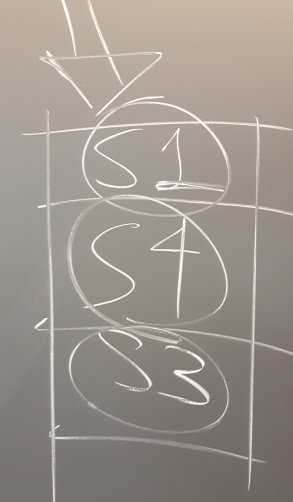 S1
S4
S3